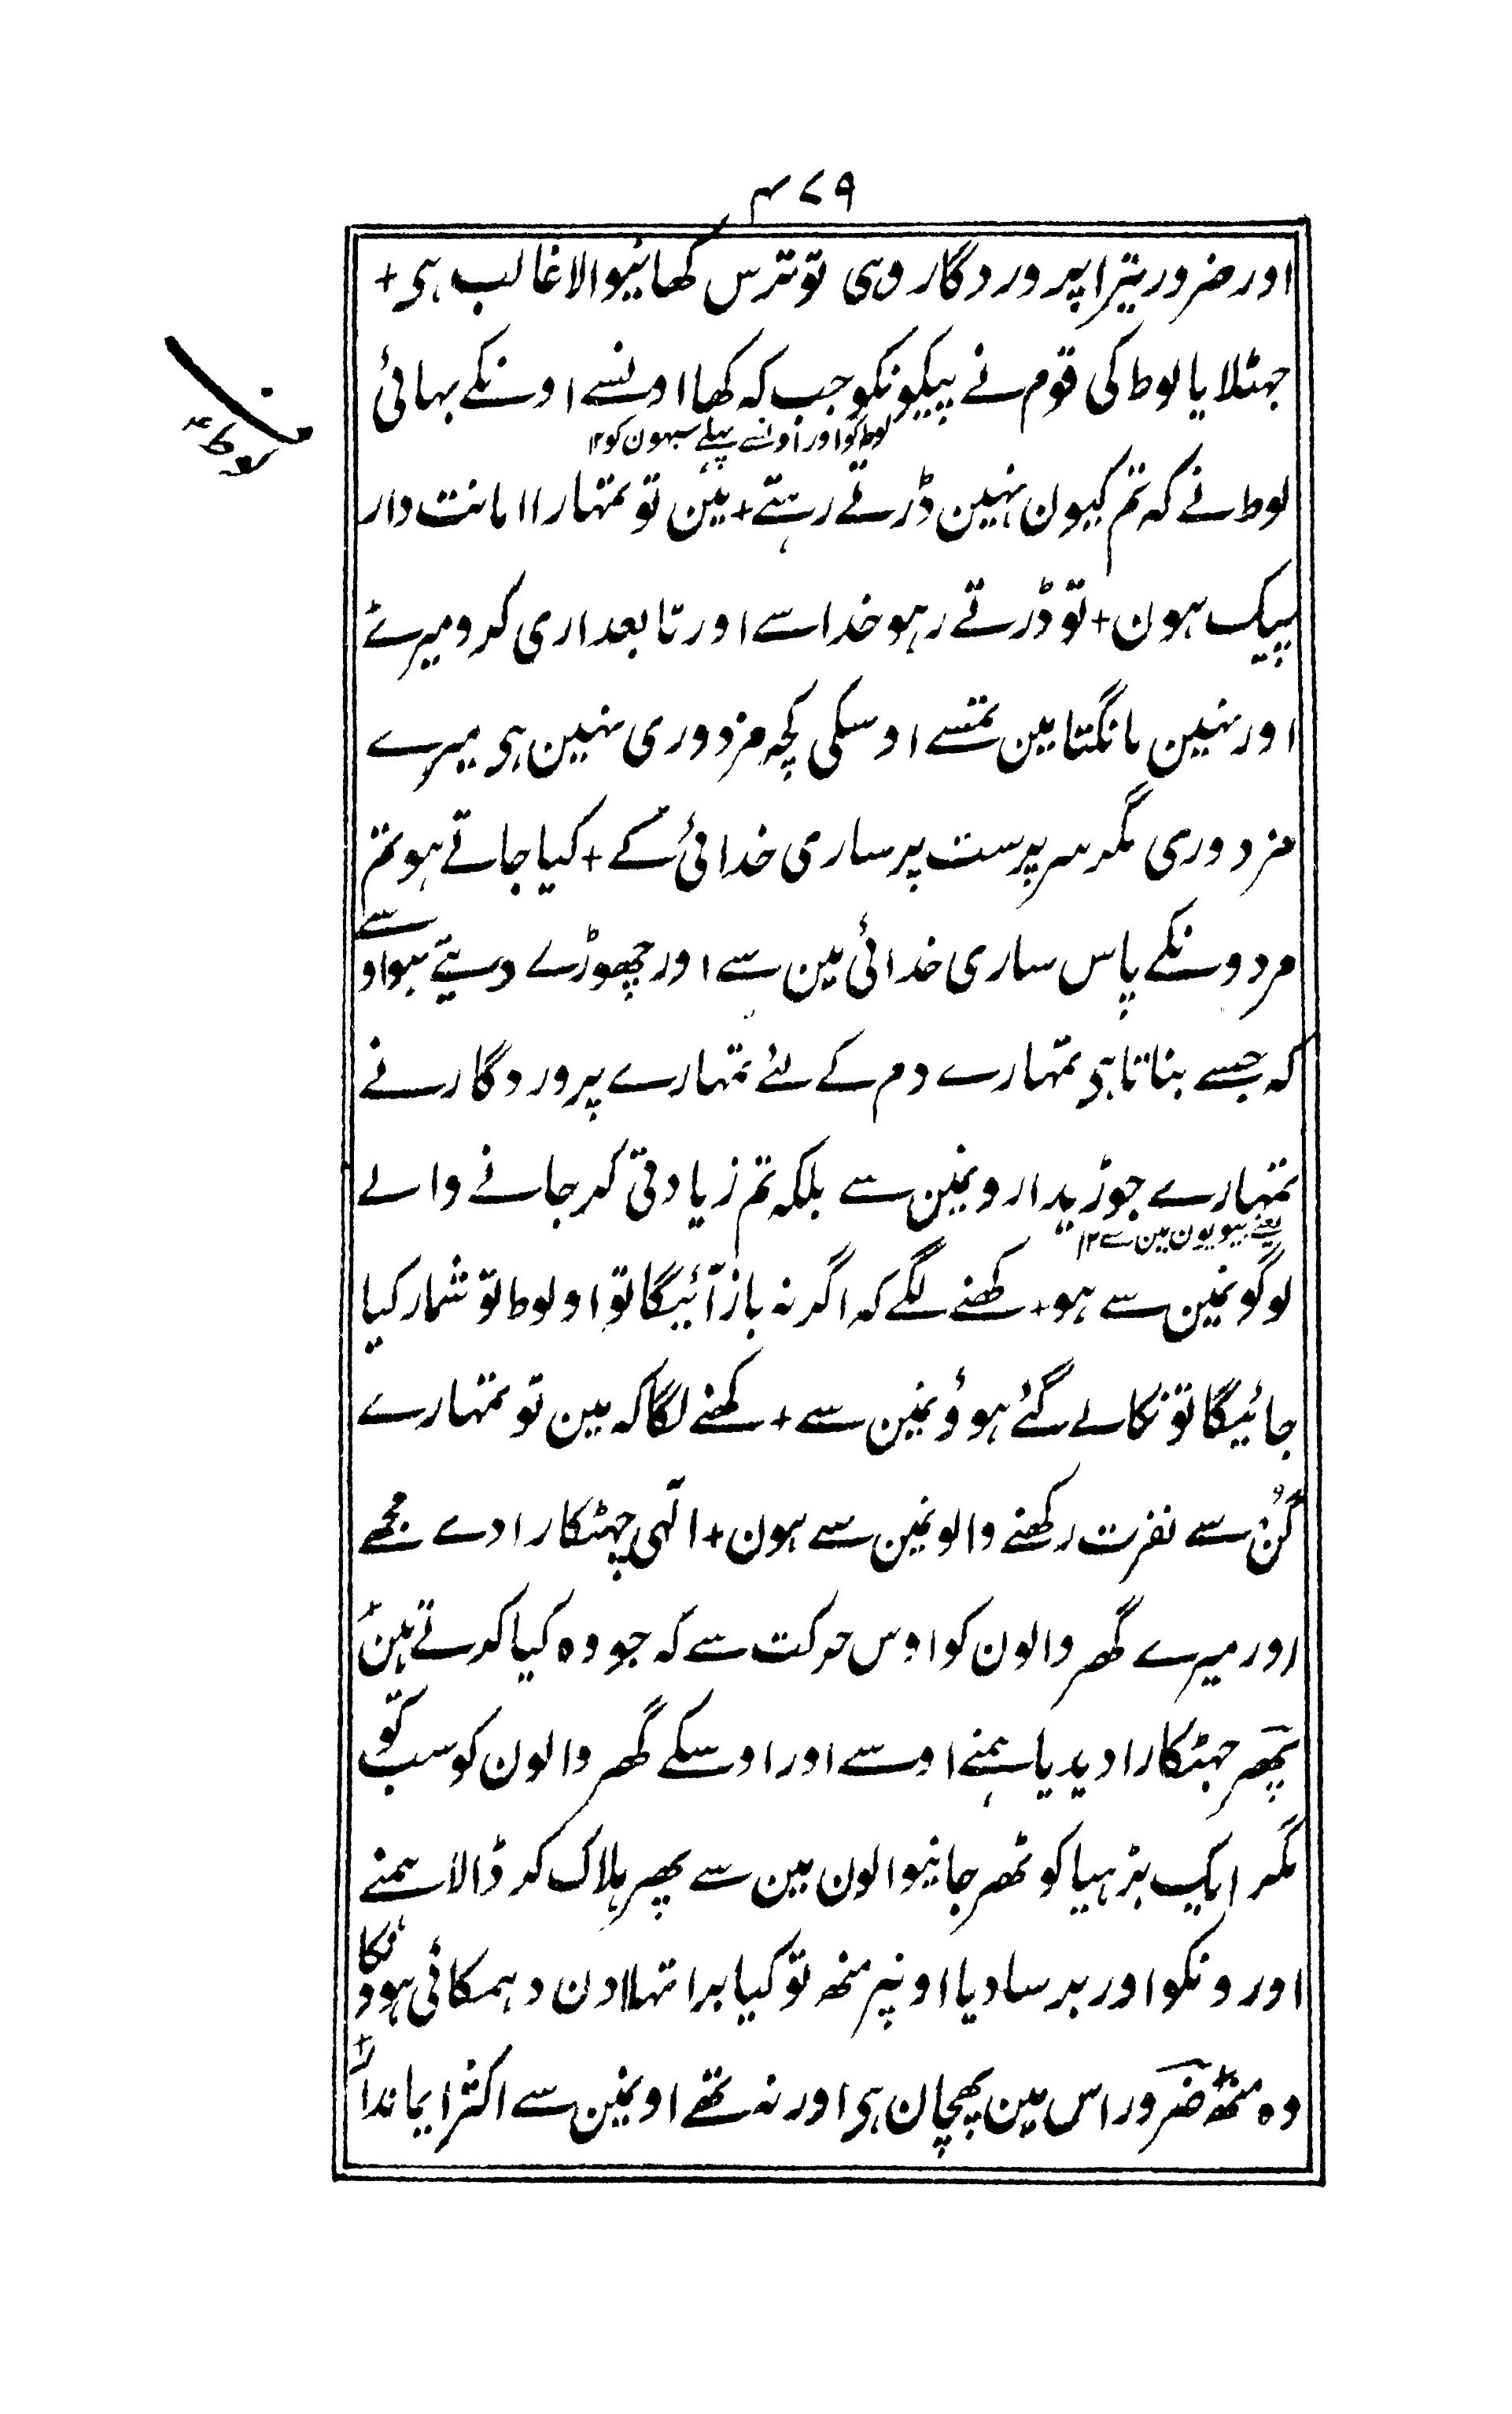 ۴۷۹
اور ضرور تیرا پروردگار وہی تو ترس کھانیوالا غالب ہی +
جہٹلایا لوط کی قوم نے پیکونکو جب کہ کھا اونسے اونکے بھائی
لوط کو اور اونسے پہلے سبہون کو ۱۲
لوط نے کہ تم کیون نہین ڈرتے رہتے + مین تو تمہارا امانت دار
پیک ہون + تو ڈرتے رہو خدا سے اور تابعداری کرو میرے
اور نہین مانگتا مین تمسے اوسکی کچہ مزدوری نہین ہی میرے
مزدوری مگر سرپرست پر ساری خدائی کے + کیا جاتے ہو تم
مردونکے پاس ساری خدائی مین سے اور چھوڑے دیتے ہو اوسے
کہ جسے بناتا ہی تمہارے دم کے لئے تمہارے پروردگار نے
تمہارے جوڑیدارونمین سے بلکہ تم زیادتی کر جانے والے
یعنے بیویون مین سے ۱۲
لوگونمین سے ہو + کھنے لگے کہ اگر نہ باز آئیگا تو او لوط تو شمار کیا
جائیگا تو نکالے گئے ہوؤنمین سے + کھنے لگا کہ مین تو تمہارے
گن سے نفرت رکھنے والونمین سے ہون + الٰہی چہٹکارا دے مجھے
اور میرے گھر والون کو اوس حرکت سے کہ جو وہ کیا کرتے ہین +
پھر چہٹکارا دیدیا ہمنے اوسے اور اوسکے گھر والون کو سب کو
مگر ایک بڑہیا کو ٹھر جانیوالون مین سے پھر ہلاک کر ڈالا ہمنے
اورونکو اور برسا دیا اونپر منھ تو کیا برا تہلا دن دہمکائی ہوؤنکا
وہ منھ ضرور اس مین پھچان ہی اور نہ تھے اونمین سے اکثر ایماندار +
لوط ؑ